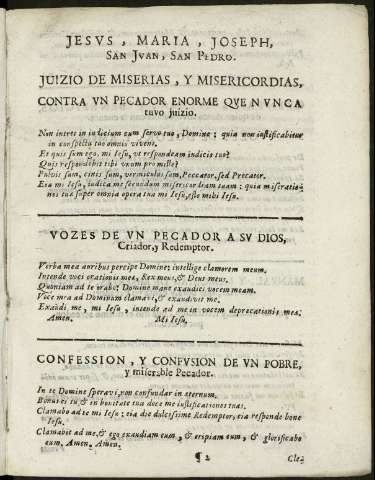 JESVS, MARIA, JOSEPH,
SAN JVAN, SAN PEDRO.
JUIZIO DE MISERIAS, Y MISERICORDIAS,
CONTRA VN PECADOR ENORME QVE NVNCA
tuvo juizio.
Non intret in iudicium cum servo tuo, Domine; quia non iustificabitur
in conspectu tuo omnis vivens.
Et quis sum ego, mi Iesu, vt respondeam iudicis tuo?
Quis respondebit tibi vnum pro mille?
Pulvis sum, cinis sum, vermiculus sum, Peccator, sed Precator.
Eia mi Iesu, iudica me secundum misericordiam tuam: quia miseratio-
nes tuæ super omnia opera tua mi Iesu, esto mihi Iesu.
VOZES DE VN PECADOR A SV DIOS,
Criador, y Redemptor.
Verba mea auribus percipe Domine; intellige clamorem meum.
Intende voci orationis meæ, Rex meus, & Deus meus.
Quoniam ad te orabo; Domine mane exaudies vocem meam.
Voce mea ad Dominum clamavi, & exaudivit me.
Exaudi me, mi Iesu, intende ad me in vocem deprecationis meæ.
Amen. Mi Iesu.
CONFESSION, Y CONFVSION DE VN POBRE,
y miserable Pecador.
In te Domine speravi, non confundar in eternum.
Bonus es tu, & in bonitate tua doce me iustificationes tuas.
Clamabo ad te mi Iesu: eia die dulcissime Redemptor, eia responde bone
Iesu.
Clamabit ad me, & ego exaudiam eum, & eripiam eum, & glorificabo
eum, Amen. Amen.
¶ 2 Cle-